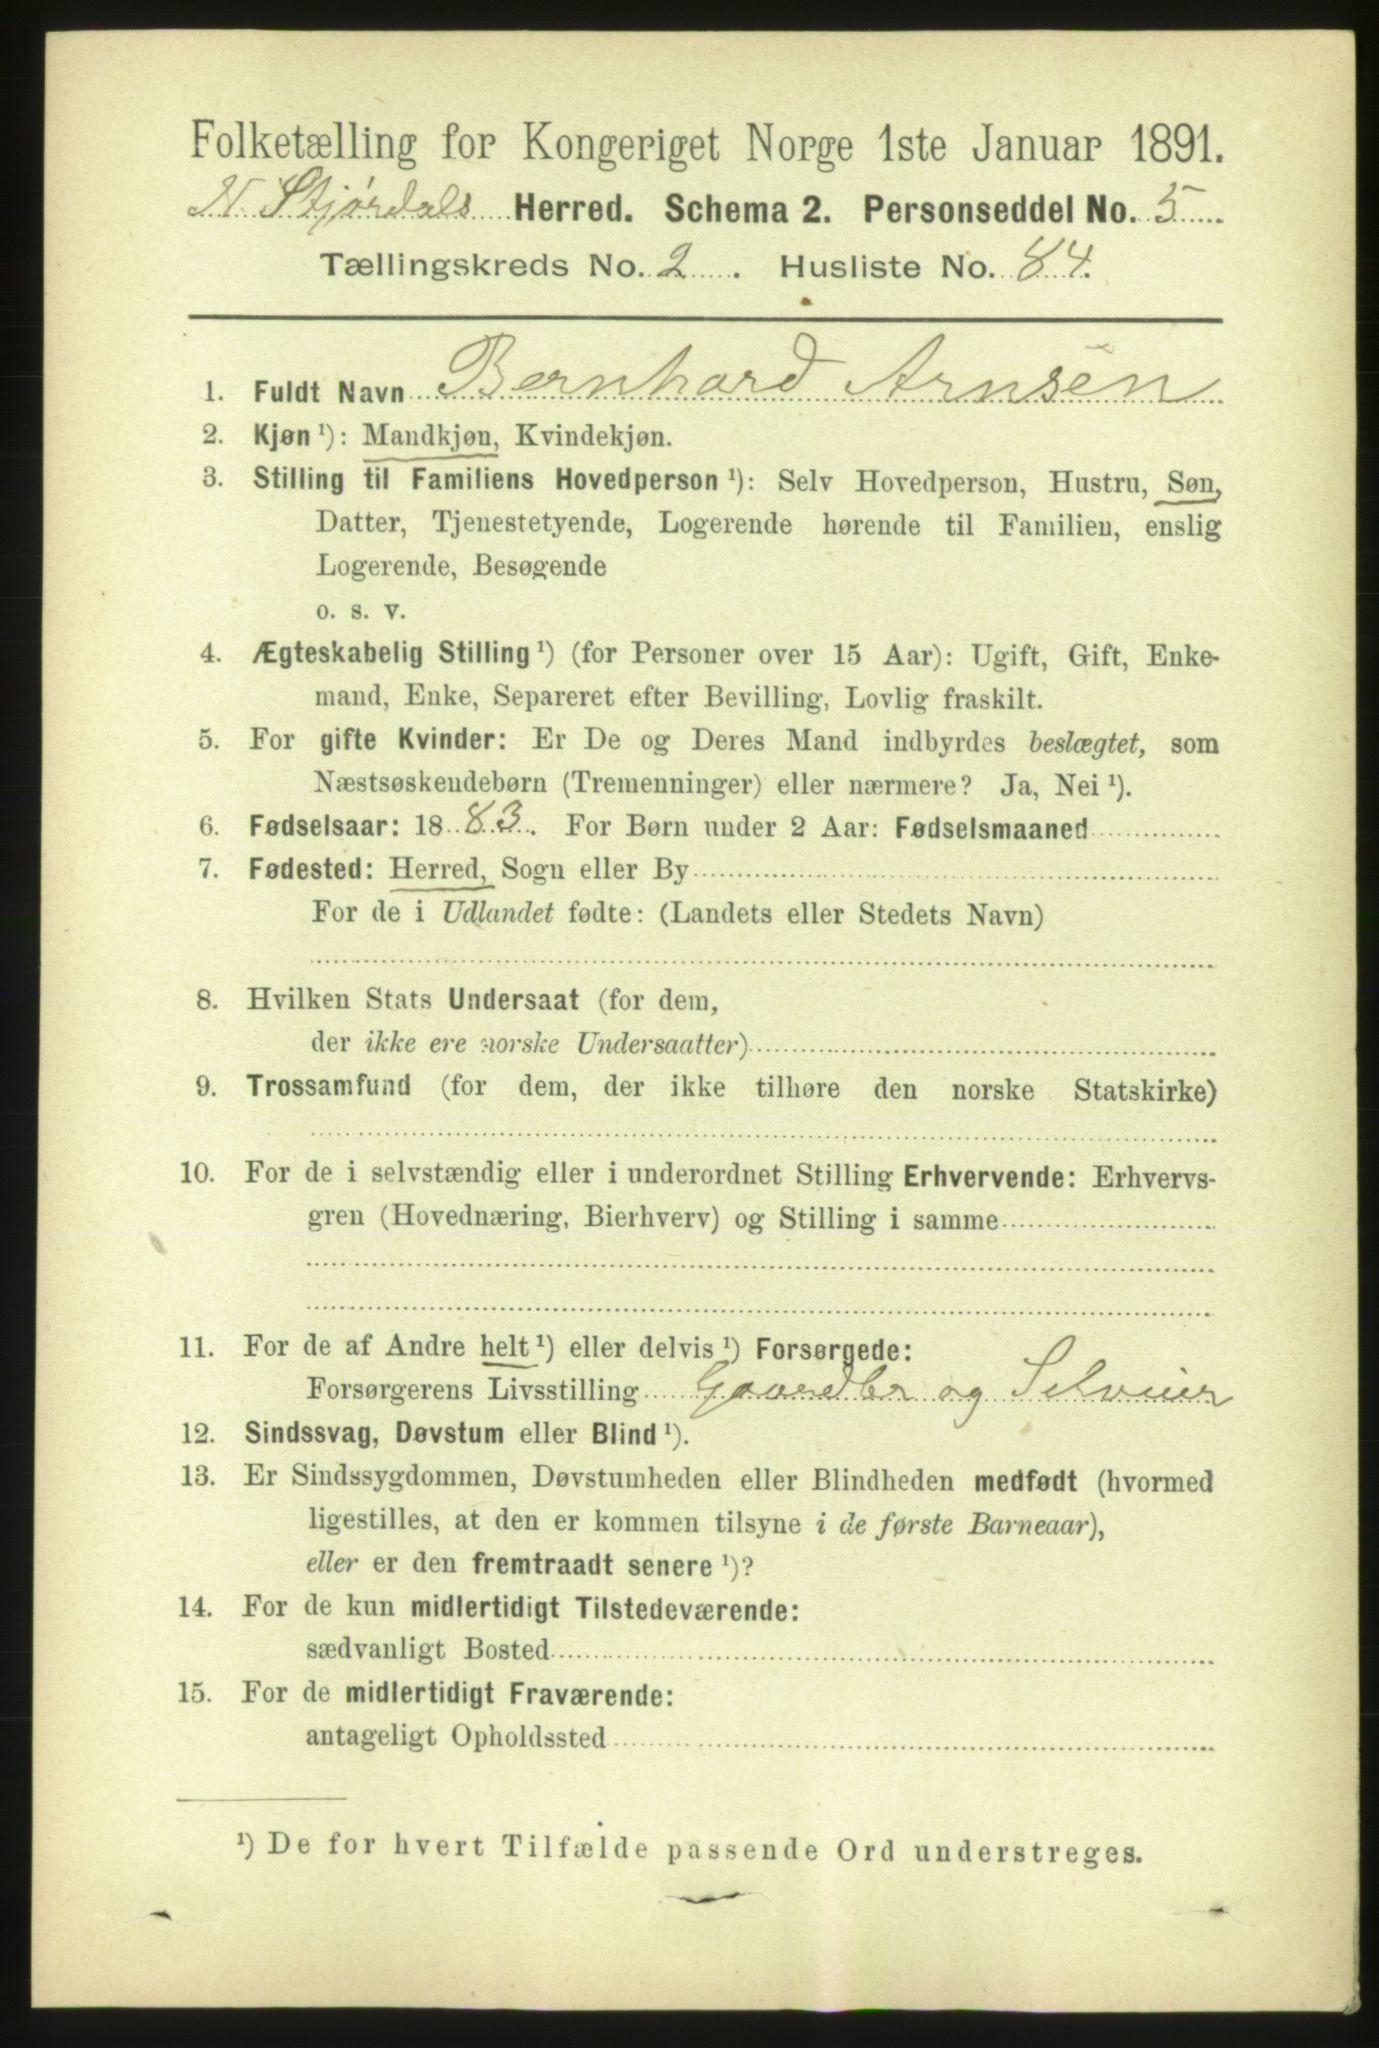 Folketælling for Kongeriget Norge 1ste Januar 1891.
N. Stjørdals Herred. Schema 2. Personseddel No. 5
Tællingskreds No. 2. Husliste No. 84.
1. Fuldt Navn Bernhard Arnsen
2. Kjøn ¹): Mandkjøn, Kvindekjøn.
3. Stilling til Familiens Hovedperson ¹): Selv Hovedperson, Hustru, Søn,
Datter, Tjenestetyende, Logerende hørende til Familien, enslig
Logerende, Besøgende
o. s. v.
4. Ægteskabelig Stilling ¹) (for Personer over 15 Aar): Ugift, Gift, Enke-
mand, Enke, Separeret efter Bevilling, Lovlig fraskilt.
5. For gifte Kvinder: Er De og Deres Mand indbyrdes beslægtet, som
Næstsøskendebørn (Tremenninger) eller nærmere? Ja, Nei ¹).
6. Fødselsaar: 1883. For Børn under 2 Aar: Fødselsmaaned
7. Fødested: Herred, Sogn eller By
For de i Udlandet fødte: (Landets eller Stedets Navn)
8. Hvilken Stats Undersaat (for dem,
der ikke ere norske Undersaatter)
9. Trossamfund (for dem, der ikke tilhøre den norske Statskirke)
10. For de i selvstændig eller i underordnet Stilling Erhvervende: Erhvervs-
gren (Hovednæring, Bierhverv) og Stilling i samme
11. For de af Andre helt ¹) eller delvis ¹) Forsørgede:
Forsørgerens Livsstilling Gaardbr og Selveier
12. Sindssvag, Døvstum eller Blind ¹).
13. Er Sindssygdommen, Døvstumheden eller Blindheden medfødt (hvormed
ligestilles, at den er kommen tilsyne i de første Barneaar),
eller er den fremtraadt senere ¹)?
14. For de kun midlertidigt Tilstedeværende:
sædvanligt Bosted
15. For de midlertidigt Fraværende:
antageligt Opholdssted
¹) De for hvert Tilfælde passende Ord understreges.